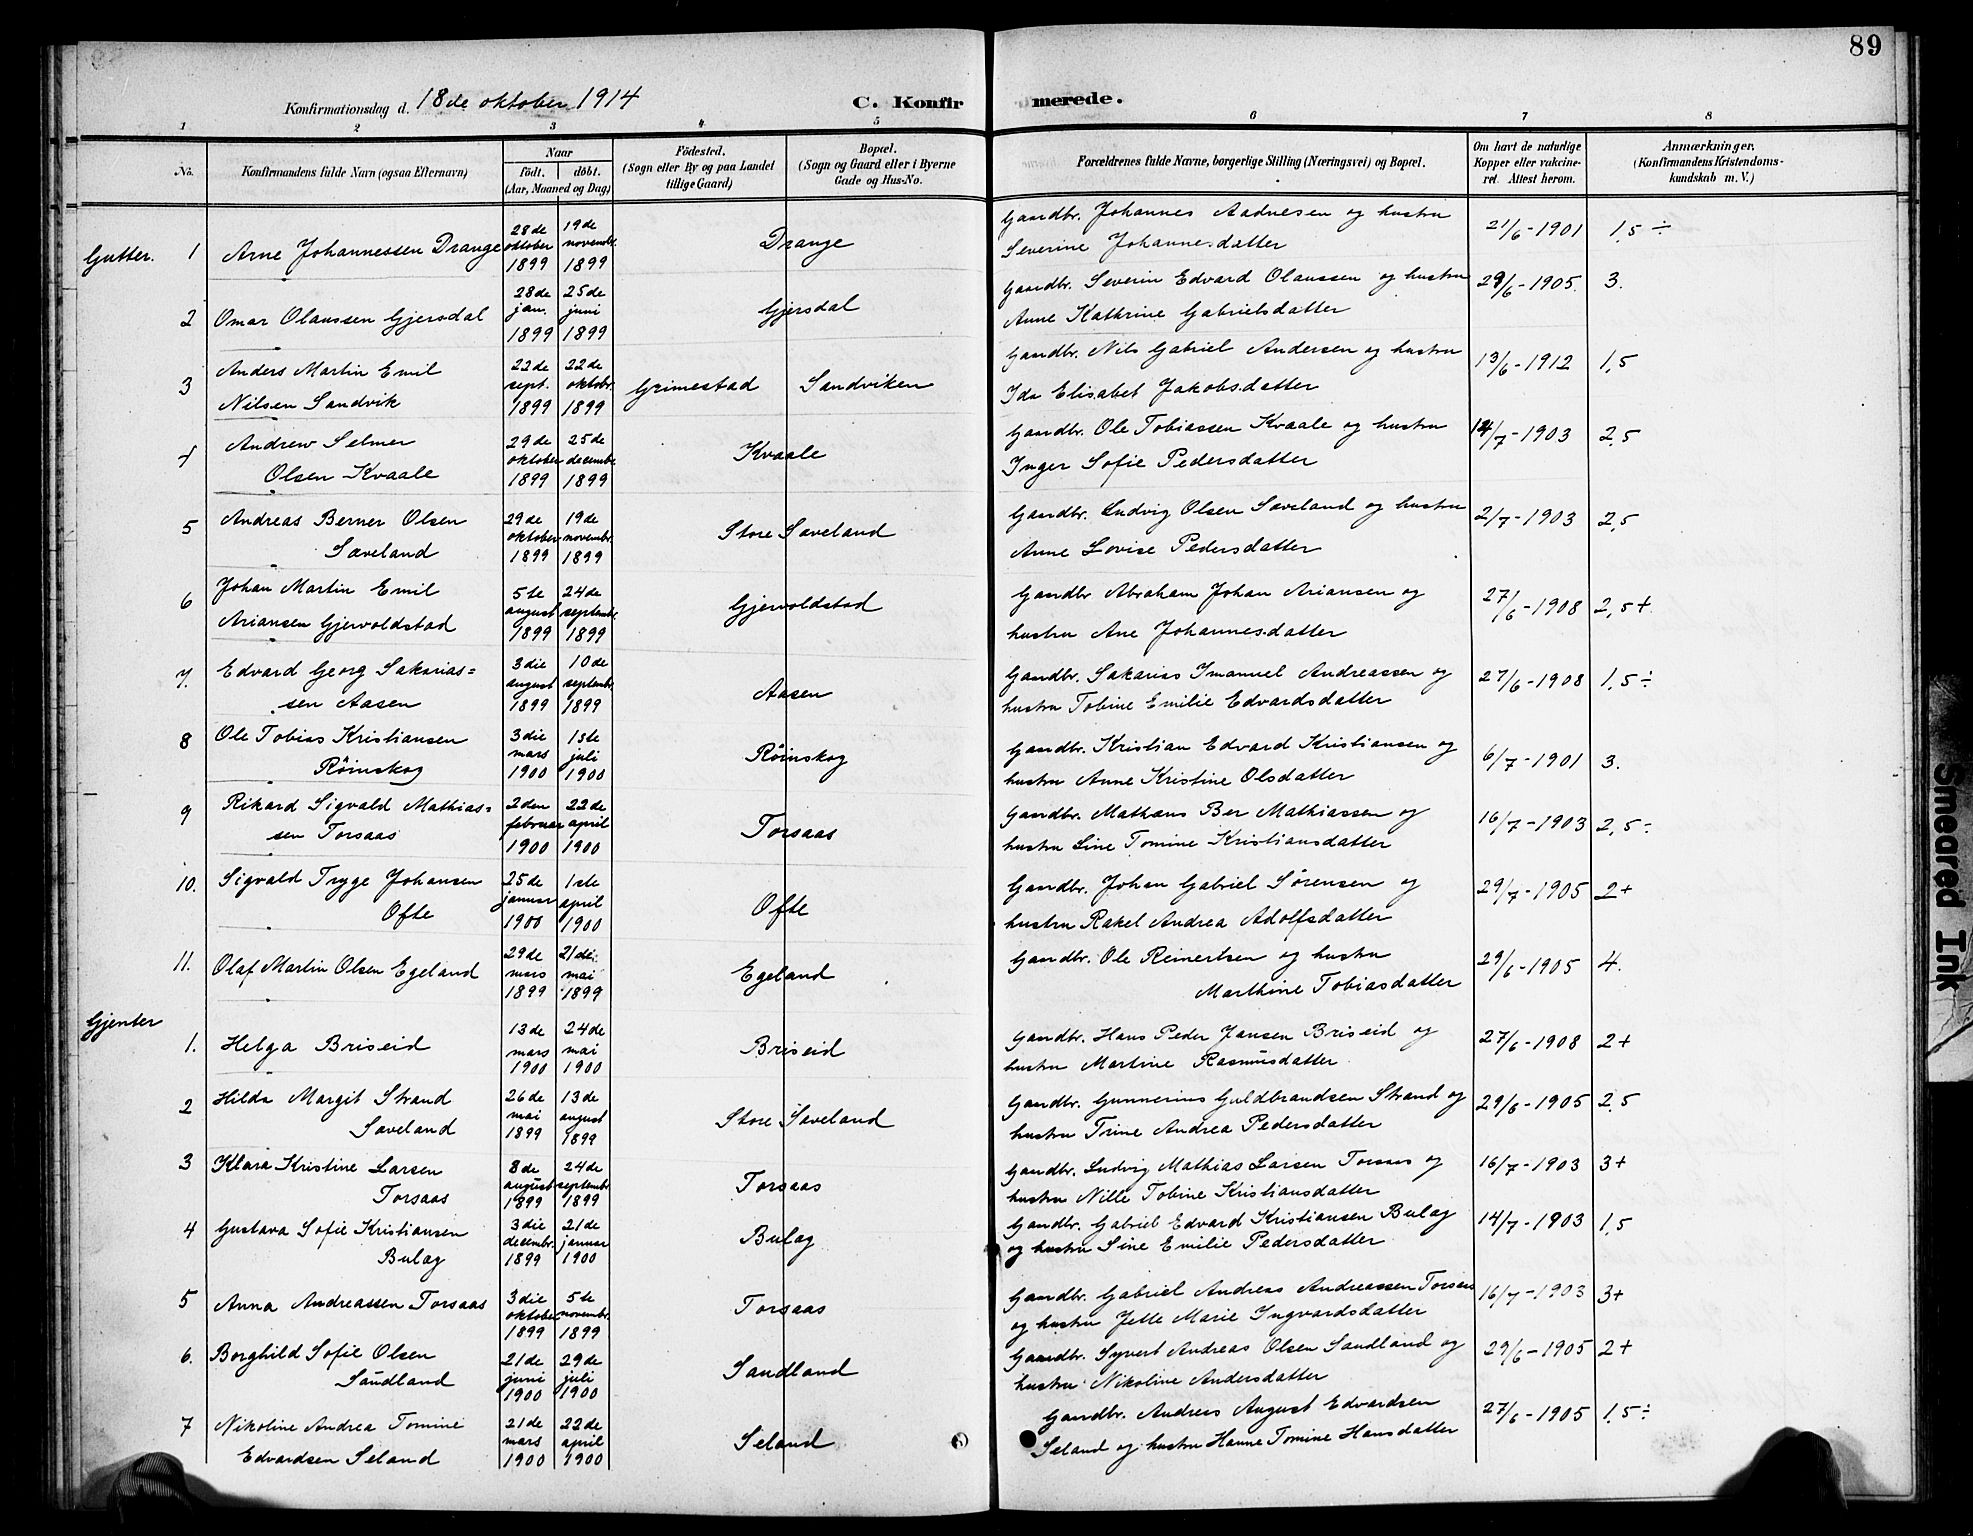 89
Konfirmationsdag d. 18de oktober 1914
C. Konfirmerede.
1 2 3 4 5 6 7 8
No.
Konfirmandens fulde Navn (ogsaa Efternavn)
Naar
födt. döbt.
(Aar, Maaned og Dag)
Födested.
(Sogn eller By og paa Landet
tillige Gaard)
Bopæl.
(Sogn og Gaard eller i Byerne
Gade og Hus-No.
Forældrenes fulde Navne, borgerlige Stilling (Næringsvei) og Bopæl.
Om havt de naturlige
Kopper eller vakcine-
ret. Attest herom.
Anmærkninger.
(Konfirmandens Kristendoms-
kundskab m. V.)
Gutter. 1 Arne Johannessen Drange 28de oktober 1899 19de novembr. 1899 Drange Gaardbr. Johannes Aadnesen og hustru
Severine Johannesdatter 21/6-1901 1,5 ÷
2 Omar Olaussen Gjersdal 28de jan. 1899 25de juni 1899 Gjersdal Gaardbr. Severin Edvard Olaussen og hustru
Anne Kathrine Gabrielsdatter 29/6-1905. 3.
3 Anders Martin Emil
Nilsen Sandvik 22de sept. 1899 22de oktobr. 1899 Grimestad Sandviken Gaardbr. Nils Gabriel Andersen og hustru
Ida Elisabet Jakobsdatter 13/6-1912 1,5
4 Andrew Selmer
Olsen Kvaale 29de oktober 1899 25de decembr. 1899 Kvaale Gaardbr. Ole Tobiassen Kvaale og hustru
Inger Sofie Pedersdatter 14/7-1903 2,5
5 Andreas Berner Olsen
Saveland 29de oktober 1899 19de novembr. 1899 Store Saveland Gaardbr. Ludvig Olsen Saveland og hustru
Anne Lovise Pedersdatter 2/7-1903 2,5
6 Johan Martin Emil
Ariansen Gjervoldstad 5te august 1899 24de septembr. 1899 Gjervoldstad Gaardbr Abraham Johan Ariansen og
hustru Ane Johannesdatter 27/6-1908 2,5+
7. Edvard Georg Sakarias=
sen Aasen 3die august 1899 10de septembr. 1899 Aasen Gaardbr. Sakarias Imanuel Andreassen og
hustru Tobine Emilie Edvardsdatter 27/6-1908 1,5÷
8 Ole Tobias Kristiansen
Röinskog 3die mars 1900 1ste juli 1900 Röinskog Gaardbr. Kristian Edvard Kristiansen og
hustru Anne Kristine Olsdatter 6/7-1901 3.
9 Rikard Sigvald Mathias=
sen Torsaas 2den februar 1900 22de april 1900 Torsaas Gaardbr. Mathæus Ber Mathiassen og
hustru Line Tomine Kristiansdatter 16/7-1903 2,5÷
10. Sigvald Tryge Johansen
Ofte 25de januar 1900 1ste april 1900 Ofte Gaardbr. Johan Gabriel Sørensen og
hustru Rakel Andrea Adolfsdatter 29/7-1905 2+
11. Olaf Martin Olsen Egeland 29de mars 1899 21de mai 1899 Egeland Gaardbr. Ole Reinertsen og hustru
Marthine Tobiasdatter 29/6-1905 4.
Gjenter
1. Helga Briseid 13de mars 1900 24de mai 1900 Briseid Gaardbr. Hans Peder Jansen Briseid og
hustru Martine Rasmusdatter 27/6-1908 2+
2 Hilda Margit Strand
Saveland 26de mai 1899 13de august 1899 Store Saveland Gaardbr. Gunnerius Guldbrandsen Strand og
hustru Trine Andrea Pedersdatter 29/6-1905 2,5
3 Klara Kristine Larsen
Torsaas 8de august 1899 24de septembr 1899 Torsaas Gaardbr. Ludvig Mathias Larsen Torsaas og
hustru Nille Tobine Kristiansdatter 16/7-1903 3+
4 Gustava Sofie Kristiansen
Bulag 3die decembr. 1899 21de januar 1900 Bulag Gaardbr. Gabriel Edvard Kristiansen Bulag
og hustru Sine Emilie Pedersdatter 14/7-1903 1,5
5 Anna Andreassen Torsaas 3die oktober 1899 5te novembr. 1899 Torsaas Gaardbr. Gabriel Andreas Andreassen Torsaas
og hustru Jette Marie Ingvardsdatter 16/7-1903 3+
6. Borghild Sofie Olsen
Sandland 21de juni 1900 29de juli 1900 Sandland Gaardbr. Syvert Andreas Olsen Sandland og
hustru Nikoline Andersdatter 29/6-1905 2+
7 Nikoline Andrea Tomine
Edvardsen Seland 21de mars 1900 22de april 1900 Seland Gaardbr. Andreas August Edvardsen
Seland og hustru Hanne Tomine Hansdatter 27/6-1905 1,5÷
Smeared Ink